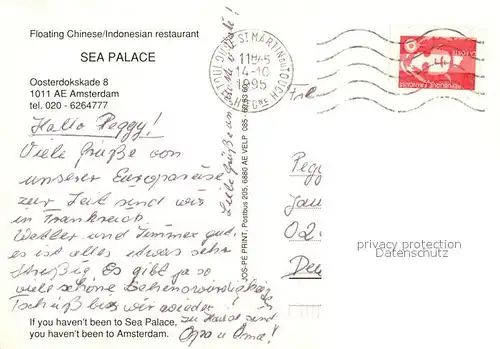 Floating Chinese/Indonesian restaurant
SEA PALACE
Oosterdokskade 8
1011 AE Amsterdam
tel. 020 - 6264777
Hallo Peggy!
Viele Grüße von
unserer Europareise
zur Zeit sind wir
in Frankreich
Wetter und Zimmer gut,
es ist alles etwas sehr
streßig Es gibt ja so
viele schöne Sehenswürdigk.
Tschüß bis wir wieder
zu Hause sind
Opa u Oma!
If you haven't been to Sea Palace,
you haven't been to Amsterdam.
Liebe Grüße an
JOS-PÉ PRINT, Postbus 205, 6880 AE VELP 085-
ST MARTIN DU TOUCH
11H45
14-10
1995
LA POSTE
REPUBLIQUE FRANÇAISE
Peg
Jau
02
Deu
privacy protection
Datenschutz